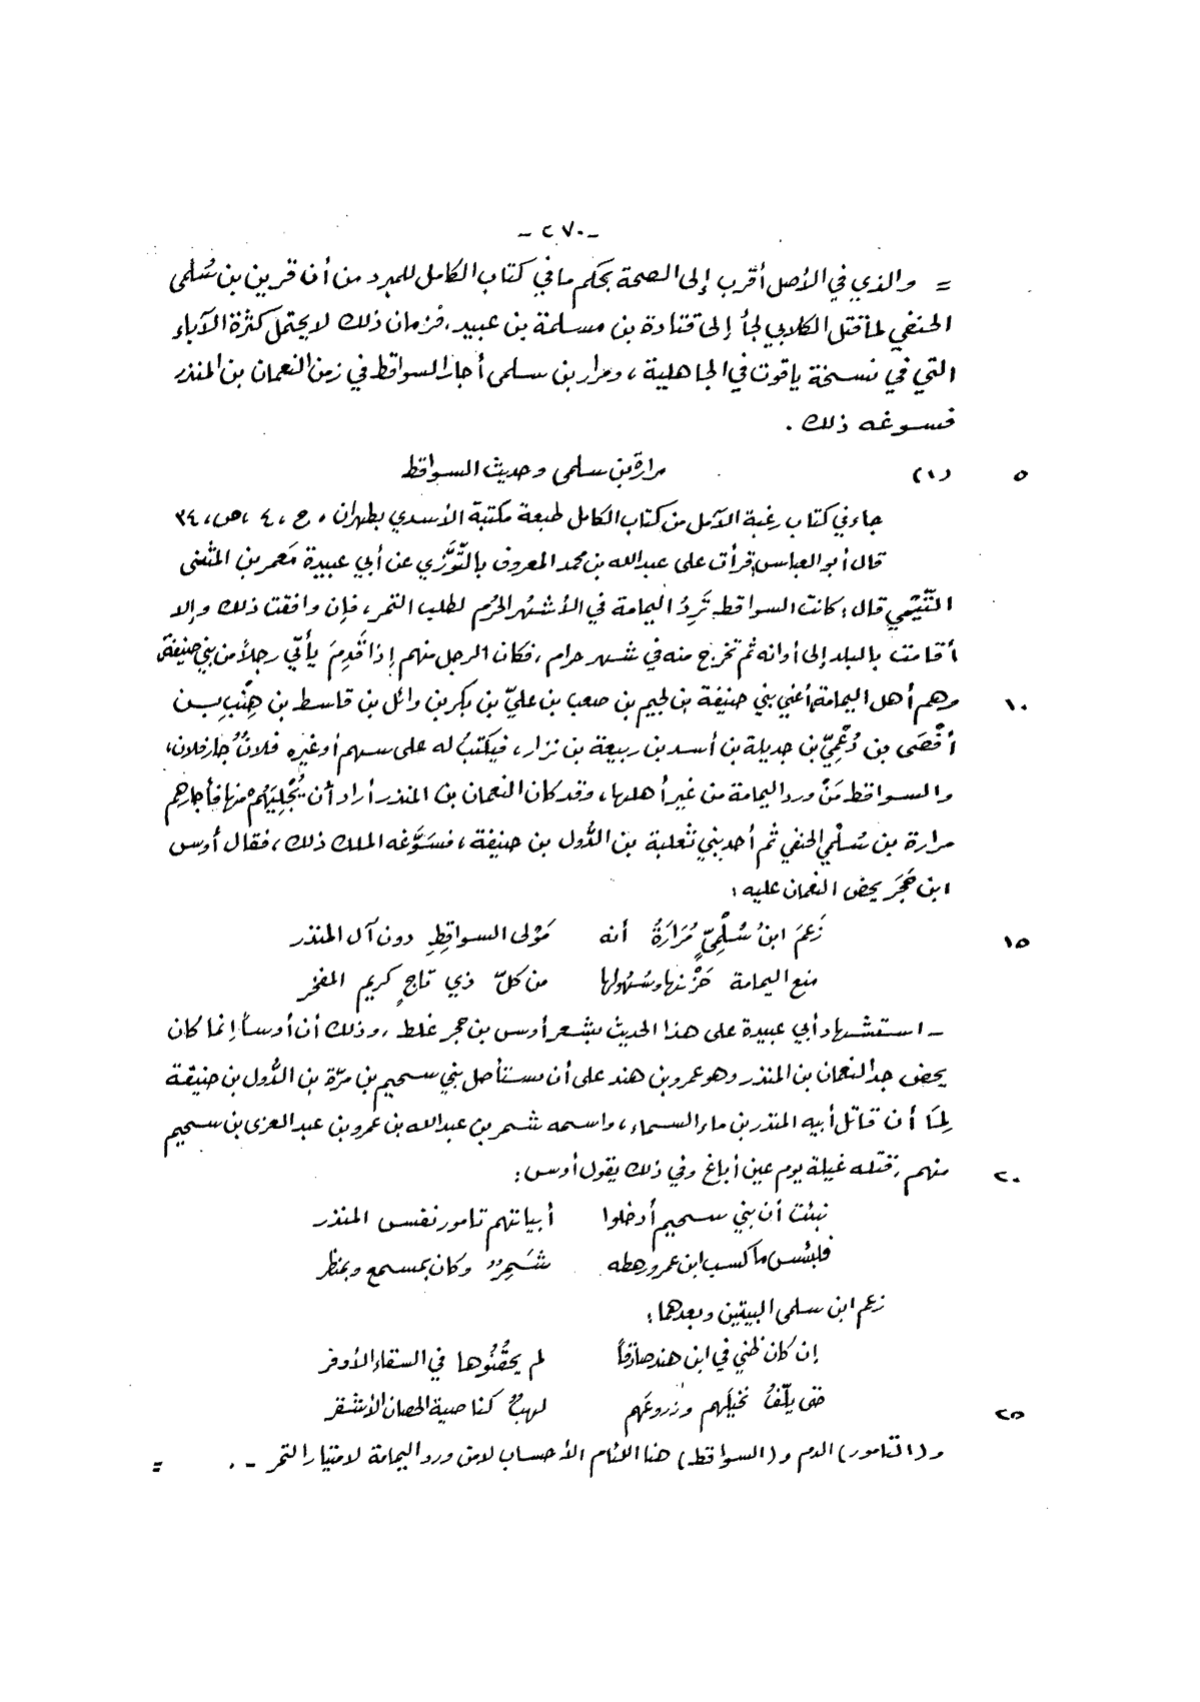 - ٢٧٠ -
= والذي في الأصل أقرب إلى الصحة بحكم ما في كتاب الكامل للمبرد من أن قرين بن سُلمى
الحنفي لما قتل الكلابي لجأ إلى قتادة بن مسلمة بن عبيد، فزمان ذلك لا يحتمل كثرة الآباء
التي في نسخة ياقوت في الجاهلية، ومرار بن سلمى أجار السواقط في زمن النعمان بن المنذر
فسوغه ذلك .
٥ (١) مرارة بن سلمى وحديث السواقط
جاء في كتاب رغبة الآمل من كتاب الكامل طبعة مكتبة الأسدي بطهران ، ج ، ٤ ، ص ، ٣٤
قال أبو العباس قرأت على عبدالله بن محمد المعروف بالتَّوَّزي عن أبي عبيدة مَعمر بن المثنى
التَّيْمي قال : كانت السواقط تَرِدُ اليمامة في الأشهُر الحُرم لطلب التمر ، فإن وافقت ذلك وإلا
أقامت بالبلد إلى أوانه ثم تخرج منه في شهر حرام ، فكان الرجل منهم إذا قَدِمَ يأتي رجلاً من بني حنيفة
١٠ وهم أهل اليمامة أعني بني حنيفة بن لجيم بن صعب بن عليّ بن بكر بن وائل بن قاسط بن هِنْب بن
أفْصَى بن دُعْمِيّ بن جديلة بن أسد بن ربيعة بن نزار ، فيكتبُ له على سهم أو غيره فلانٌ جار فلان ،
والسواقط مَنْ ورد اليمامة من غير أهلها ، وقد كان النعمان بن المنذر أراد أن يُجْلِيَهُمْ منها فأجارهم
مرارة بن سُلْمي الحنفي ثم أحد بني ثعلبة بن الدُّول بن حنيفة ، فسَوَّغه الملك ذلك ، فقال أوس
ابن حَجَر يحض النعمان عليه :
١٥ زَعمَ ابنُ سُلْمِيٍّ مُرَارَةُ أنه مَوْلى السواقِطِ دون آل المنذر
منع اليمامة حَزْنها وسُهُولها من كلّ ذي تاجٍ كريم المفخر
- استشهاد أبي عبيدة على هذا الحديث بشعر أوس بن حجر غلط ، وذلك أن أوساً إنما كان
يحض جد النعمان بن المنذر وهو عمرو بن هند على أن يستأصل بني سحيم بن مرّة بن الدُّول بن حنيفة
لِمَا أن قاتل أبيه المنذر بن ماء السماء ، واسمه شمر بن عبدالله بن عمرو بن عبد العزى بن سحيم
٢٠ منهم ، قتله غيلة يوم عين أباغ وفي ذلك يقول أوس :
نبئت أن بني سحيم أدخلوا أبياتهم تامور نفس المنذر
فلبئس ما كسب ابن عمرو رهطه شَمِرٌ وكان بمسمع وبمنظر
زعم ابن سلمى البيتين وبعدهما :
إن كان ظني في ابن هند صادقاً لم يحقُنُوها في السقاء الأوفر
٢٥ حتى يلُفَّ نخيلَهم وزروعَهم لهبٌ كناصية الحصان الأشقر
و (التامور) الدم و (السواقط) هنا اللئام الأحساب لا من ورد اليمامة لامتيار التمر - . =